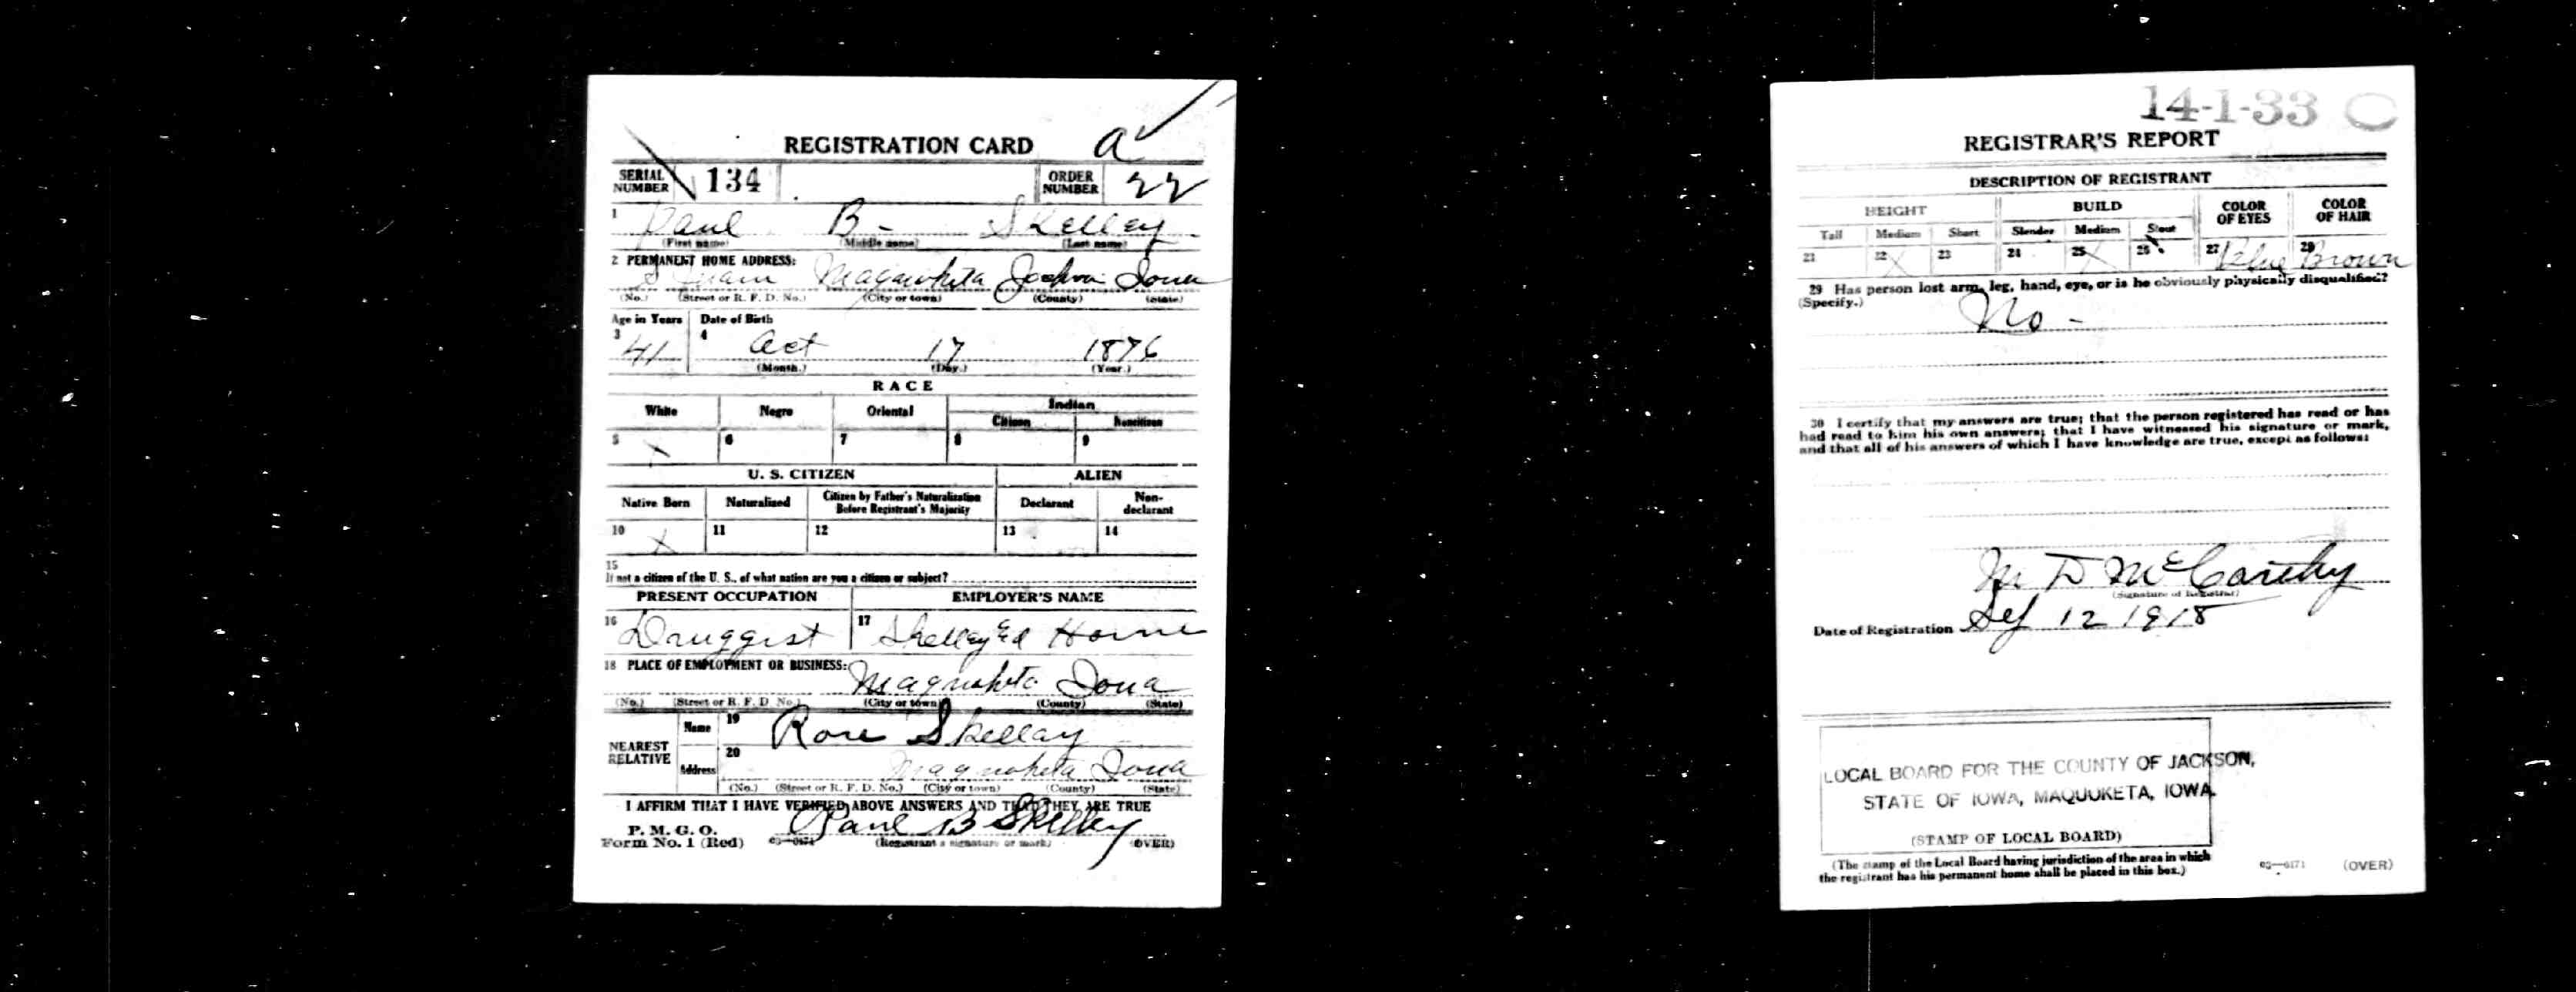 REGISTRATION CARD a
SERIAL NUMBER 134 ORDER NUMBER 22
1 Paul B - Skelley
(First name) (Middle name) (Last name)
2 PERMANENT HOME ADDRESS:
S Maquoketa Jackson Iowa
(No.) (Street or R. F. D. No.) (City or town) (County) (State)
Age in Years Date of Birth
3 41 4 Oct 17 1876
(Month.) (Day.) (Year.)
RACE
White Negro Oriental Indian
Citizen Noncitizen
5 X 6 7 8 9
U. S. CITIZEN ALIEN
Native Born Naturalized Citizen by Father's Naturalization Before Registrant's Majority Declarant Non-declarant
10 X 11 12 13 14
15
If not a citizen of the U. S., of what nation are you a citizen or subject?
PRESENT OCCUPATION EMPLOYER'S NAME
16 Druggist 17 Skelley
18 PLACE OF EMPLOYMENT OR BUSINESS:
Maquoketa Iowa
(No.) (Street or R. F. D. No.) (City or town) (County) (State)
NEAREST RELATIVE
Name 19 Rose Skelley
Address 20 Maquoketa Iowa
(No.) (Street or R. F. D. No.) (City or town) (County) (State)
I AFFIRM THAT I HAVE VERIFIED ABOVE ANSWERS AND THAT THEY ARE TRUE
P. M. G. O.
Form No. 1 (Red) 03—6171 Paul B Skelley
(Registrant's signature or mark) (OVER)
14-1-33 C
REGISTRAR'S REPORT
DESCRIPTION OF REGISTRANT
HEIGHT BUILD COLOR OF EYES COLOR OF HAIR
Tall Medium Short Slender Medium Stout
21 22 X 23 24 25 X 26 27 Blue 28 Brown
29 Has person lost arm, leg, hand, eye, or is he obviously physically disqualified?
(Specify.) No -
30 I certify that my answers are true; that the person registered has read or has
had read to him his own answers; that I have witnessed his signature or mark,
and that all of his answers of which I have knowledge are true, except as follows:
M D McCarthy
(Signature of Registrar)
Date of Registration Sep 12 1918
LOCAL BOARD FOR THE COUNTY OF JACKSON,
STATE OF IOWA, MAQUOKETA, IOWA.
(STAMP OF LOCAL BOARD)
(The stamp of the Local Board having jurisdiction of the area in which
the registrant has his permanent home shall be placed in this box.)
03—6171 (OVER)